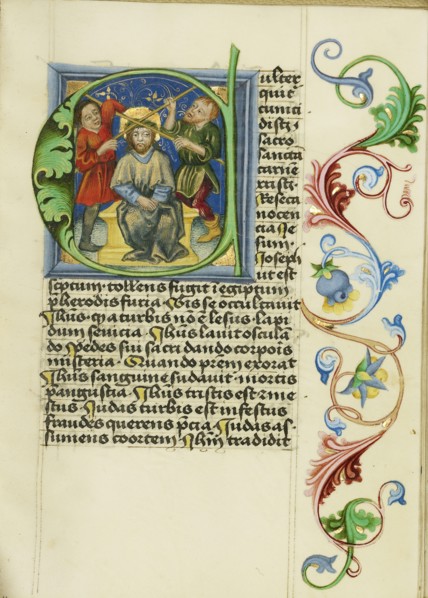 Culter
qui c
cūnci
disti ·
Sacro
sancta
carnē
xpisti ·
Reseca
nocen
cia Ie
sum ·
Joseph
ut est
sceptum · tollens fugit i egiptum
pherodis furia · Vis se occultauit
Ihus · qua turbis nō ē lesus · lapi
dum seuicia · Ihus lauit osculan
do pedes sui sacri dando corpois
misteria · Quando prem exorat
Ihus sanguine sudauit · mortis
pangustia · Ihus tristis est z me
stus · Judas turbis est infestus
fraudes querens pcia · Judas as
sumens coortem · Ihm tradidit